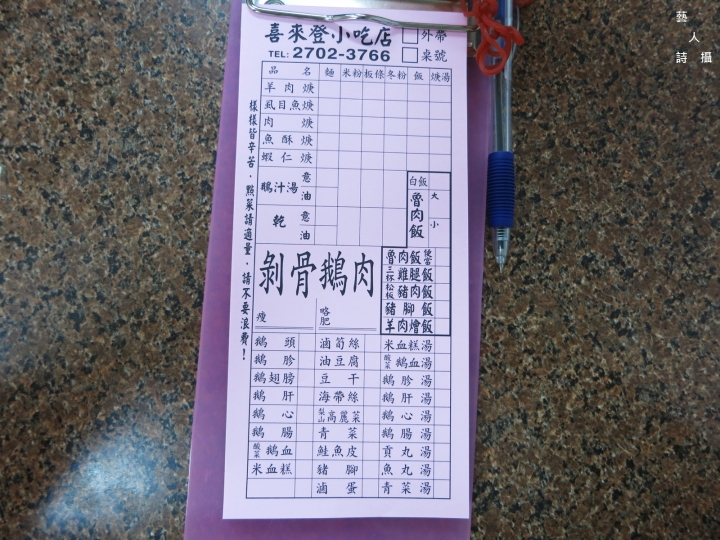 喜來登小吃店 □外帶
TEL: 2702-3766 □桌號
品名 麵 米粉 板條 冬粉 飯 焿湯
羊肉焿
虱目魚焿
肉焿
魚酥焿
蝦仁焿
鵝汁湯 意 油
乾 意 油
白飯
魯肉飯 大 小
剝骨鵝肉
瘦 略肥
魯肉飯便當
三杯雞腿飯
松板豬肉飯
豬腳飯
羊肉燴飯
鵝頭 滷筍絲 米血糕湯
鵝胗 油豆腐 酸菜鵝血湯
鵝翅膀 豆干 鵝胗湯
鵝肝 海帶絲 鵝肝湯
鵝心 梨山高麗菜 鵝心湯
鵝腸 青菜 鵝腸湯
酸菜鵝血 鮭魚皮 貢丸湯
米血糕 豬腳 魚丸湯
滷蛋 青菜湯
樣樣皆辛苦．點菜請適量．請不要浪費！
藝人詩攝